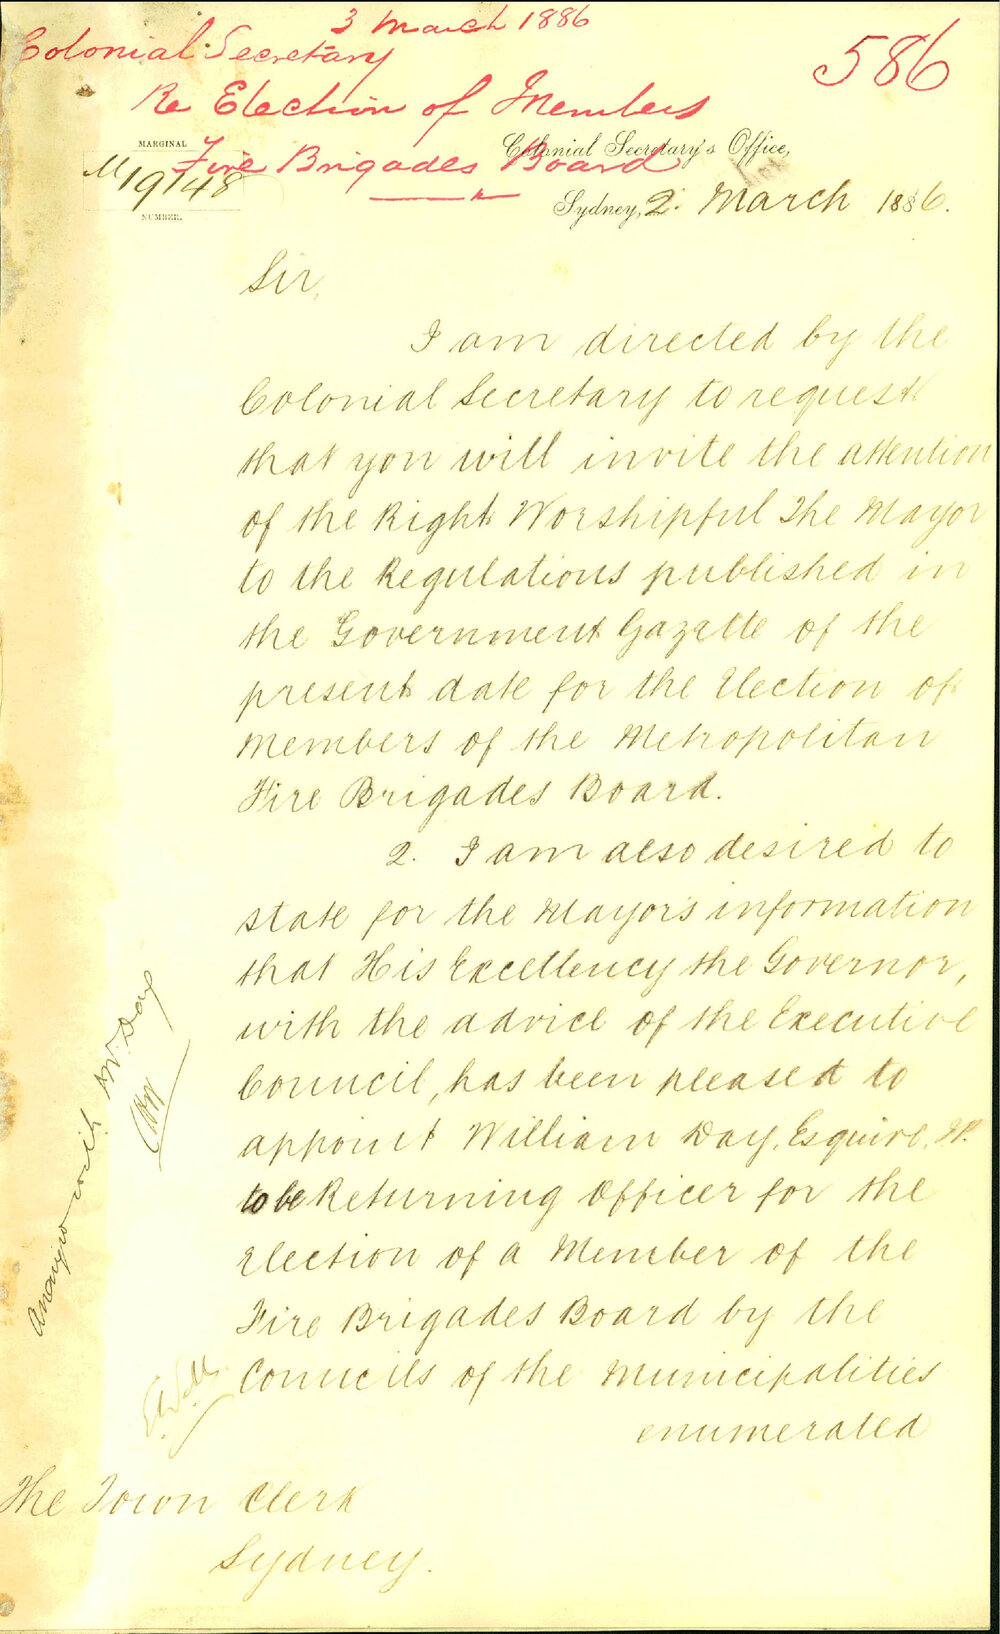 3 March 1886
Colonial Secretary
586
Re Election of Members
Fire Brigades Board
MARGINAL
NUMBER.
Colonial Secretary's Office,
Sydney, 2. March 1886.
Sir,
I am directed by the
Colonial Secretary to request
that you will invite the attention
of the Right Worshipful The Mayor
to the Regulations published in
the Government Gazette of the
present date for the Election of
Members of the Metropolitan
Fire Brigades Board.
2. I am also desired to
state for the Mayor's information
that His Excellency the Governor,
with the advice of the Executive
Council, has been pleased to
appoint William Day, Esquire, JP.
to be Returning Officer for the
Election of a Member of the
Fire Brigades Board by the
Councils of the Municipalities
enumerated
The Town Clerk
Sydney.
with W. Day